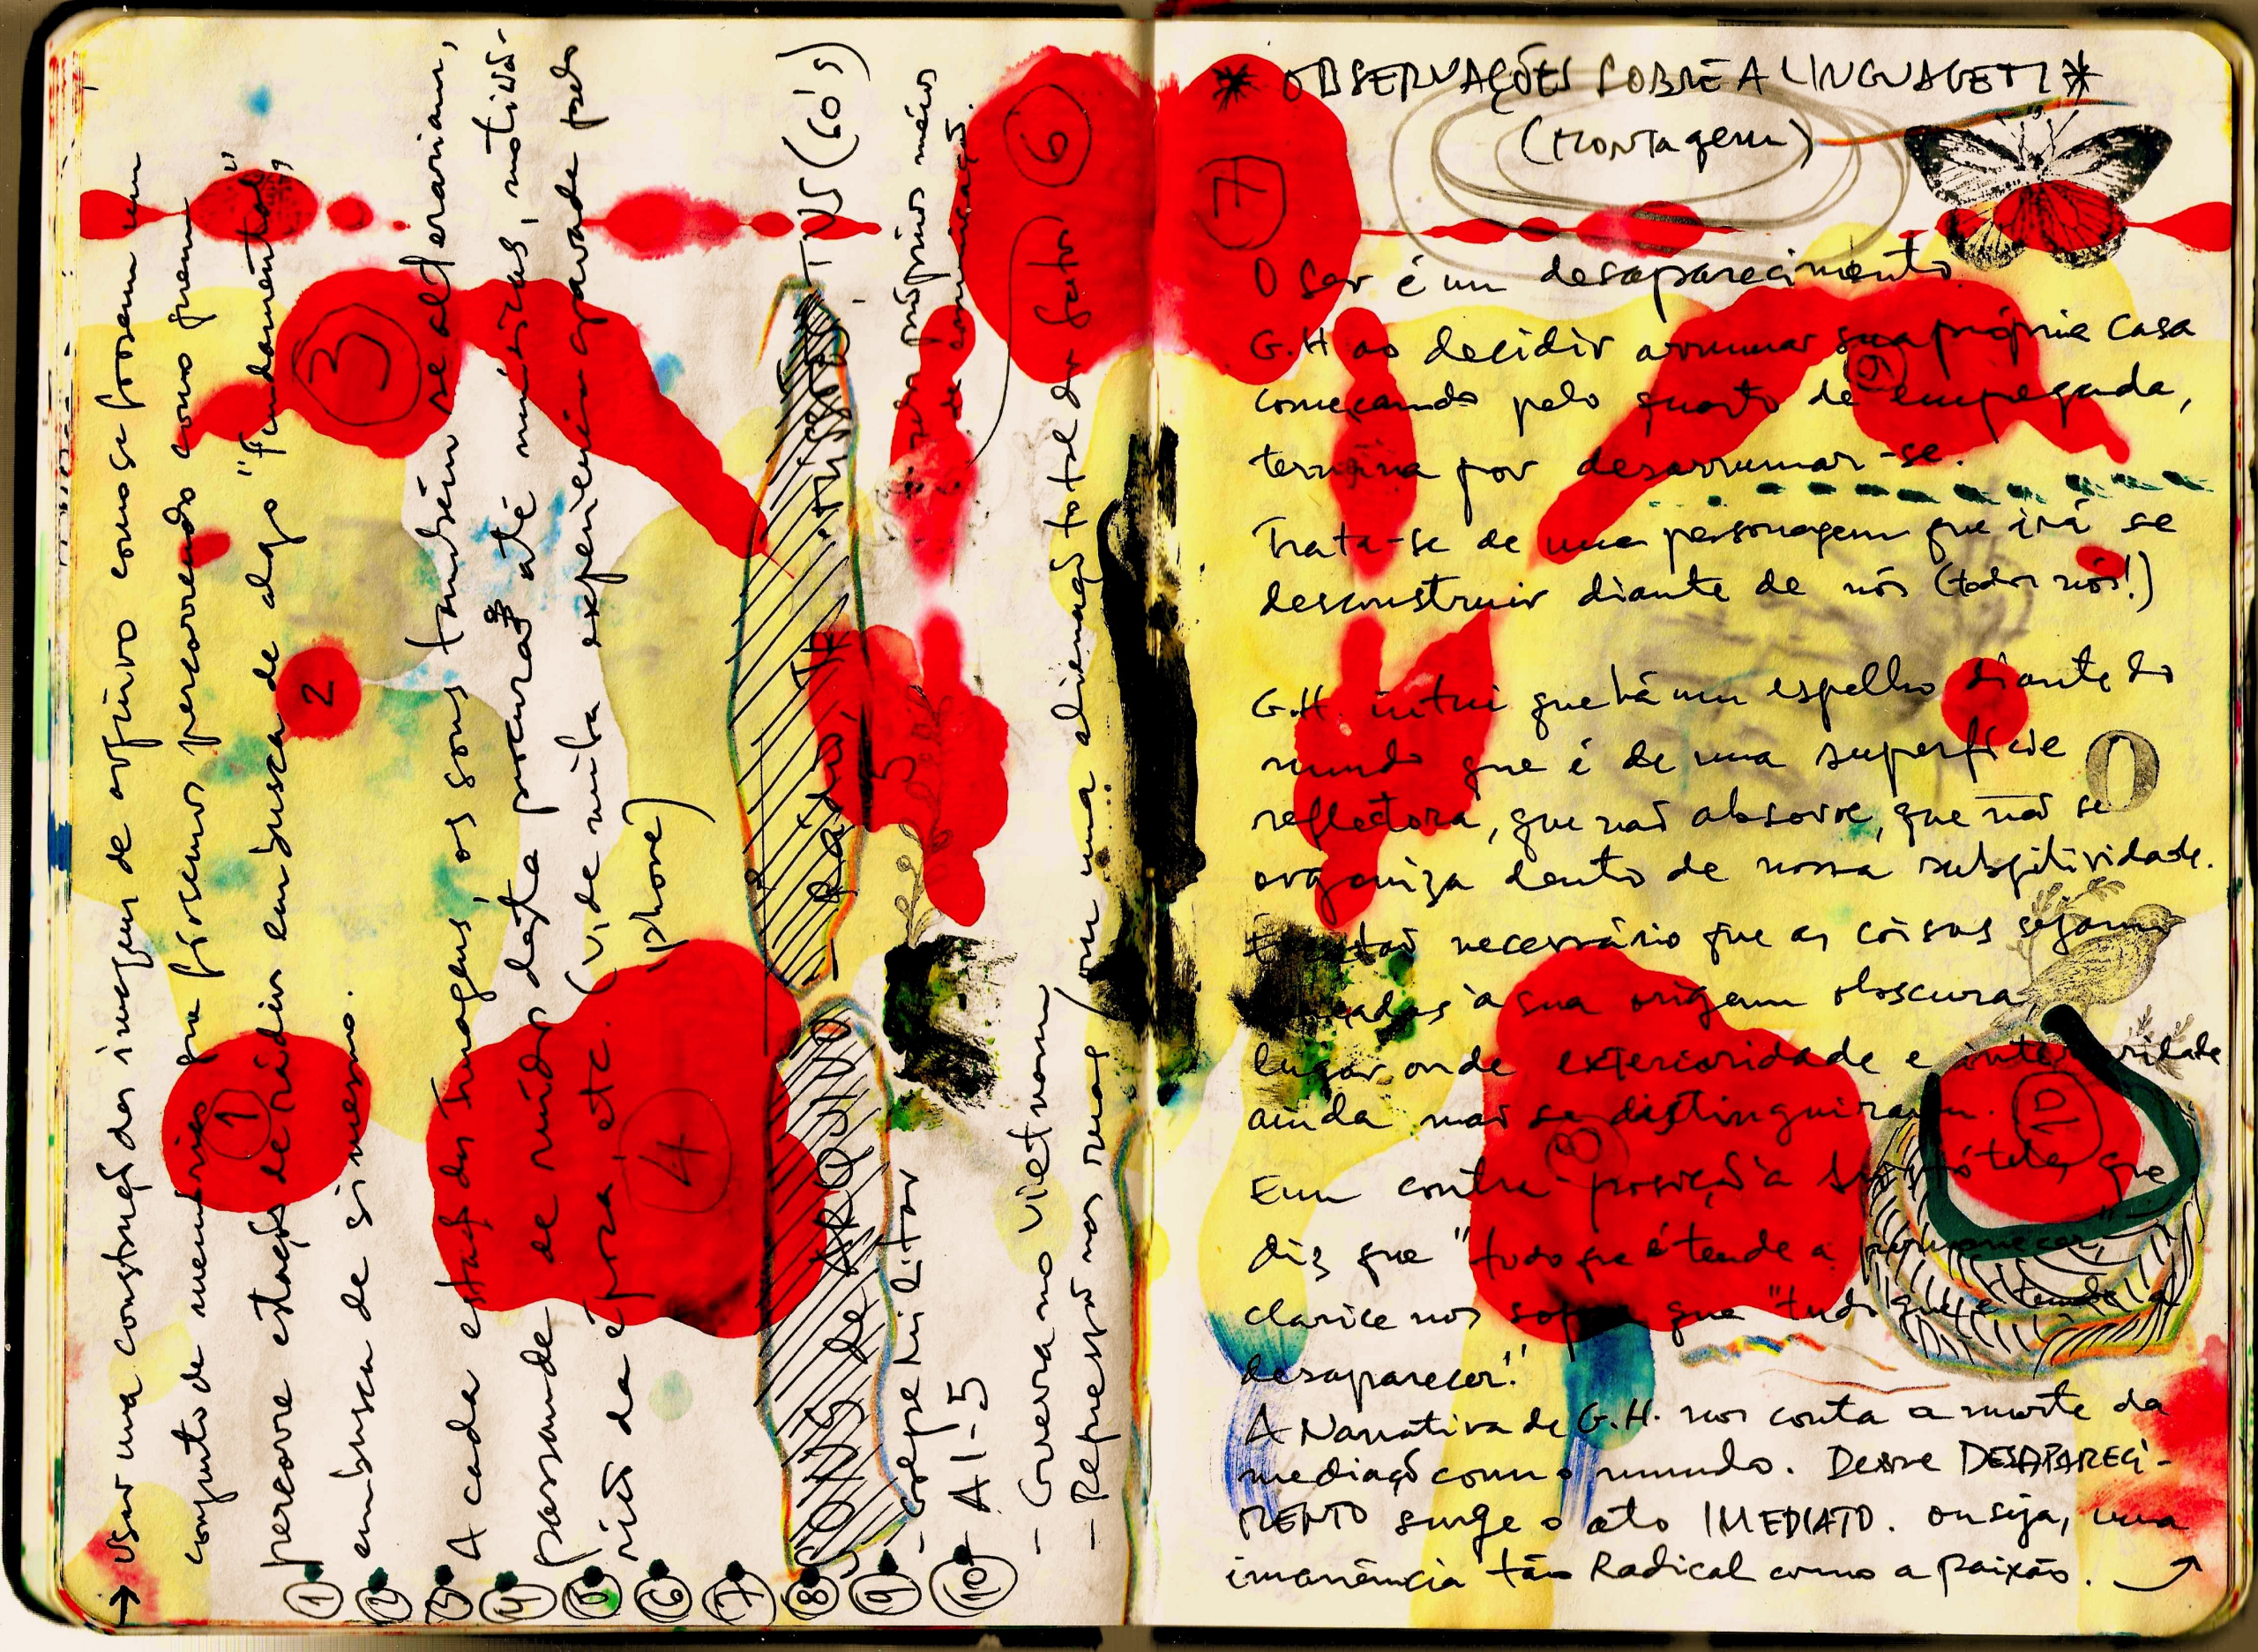 → Usar uma construção das imagens de arquivo como se fossem um
conjunto de memórias que fôssemos percorrendo como quem
percorre estações de rádio em busca de algo "fundamental",
em busca de si mesmo.
A cada estação das imagens, os sons também se alterariam,
passando de ruídos desta procura até músicas, noticiá-
rios da época, etc. (vide minha experiência gravada pelo
iphone)
SONS DE ARQUIVO
Rádio, TV (60's)
- Golpe Militar
- AI-5
- Guerra no Vietnam
- Repressão nas ruas / com uma alienação total dos fatos
pelos próprios meios
de comunicação.
1
2
3
4
5
6
1 2 3 4 5 6 7 8 9 10
7
* OBSERVAÇÕES SOBRE A LINGUAGEM *
(MONTagem)
O ser é um desaparecimento.
G.H ao decidir arrumar sua própria casa
começando pelo quarto de empregada,
termina por desarrumar-se.
Trata-se de uma personagem que irá se
desconstruir diante de nós (todos nós!)
G.H. intui que há um espelho diante do
mundo que é de uma superfície
reflectora, que não absorve, que não se
organiza dentro de nossa subjetividade.
necessário que as coisas sejam
à sua origem obscura,
lugar onde exterioridade e interioridade
ainda não se distinguiram.
Em contra-posição a Aristóteles, que
diz que "tudo que é tende a permanecer",
clarice nos sopra que "tudo que é tende a
desaparecer."
A Narrativa de G.H. nos conta a morte da
mediação com o mundo. Desse DESAPARECI-
MENTO surge o ato IMEDIATO. ou seja, uma
imanência tão Radical como a paixão.
0
8
9
10